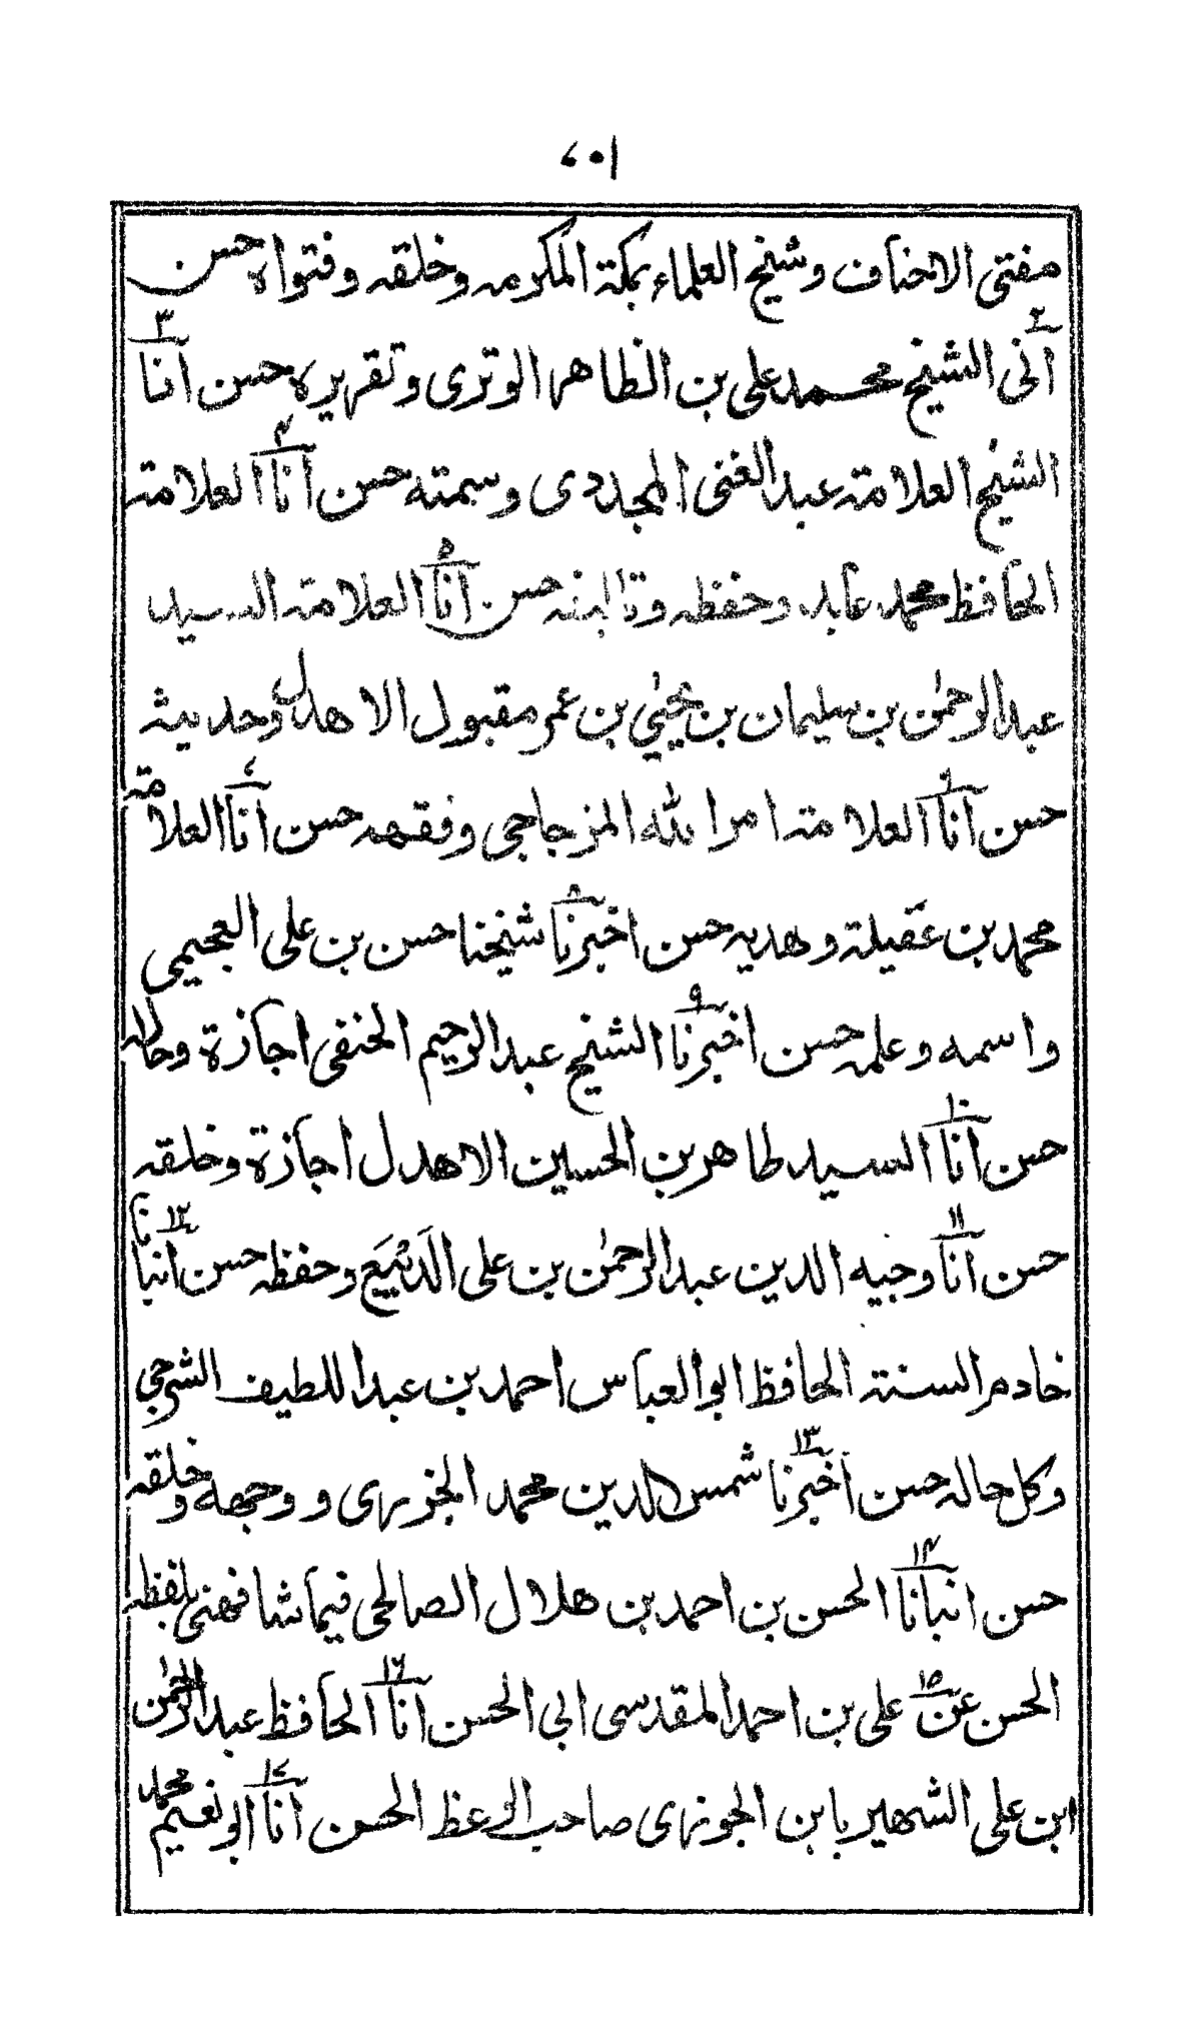 ۱۰۷
مفتی الاحناف وشیخ العلماء بمکة المکرمه وخلقه وفتواه حسن
۲ أنی الشیخ محمد علی بن الظاهر الوتری وتقریره حسن ۳ أنا
الشیخ العلامة عبد الغنی المجددی وسمته حسن ۴ أنا العلامة
الحافظ محمد عابد وحفظه وتالیفه حسن ۵ أنا العلامة السید
عبد الرحمٰن بن سلیمان بن یحیٰی بن عمر مقبول الاهدل وحدیثه
حسن ۶ أنا العلامة امر الله المزجاجی وفقهه حسن ۷ أنا العلامة
محمد بن عقیلة وهدیه حسن ۸ اخبرنا شیخنا حسن بن علی العجیمی
واسمه وعلمه حسن ۹ اخبرنا الشیخ عبد الرحیم الحنفی اجازة وحاله
حسن ۱۰ أنا السید طاهر بن الحسین الاهدل اجازة وخلقه
حسن ۱۱ أنا وجیه الدین عبد الرحمٰن بن علی الدَیْبَع وحفظه حسن ۱۲ انبانا
خادم السنة الحافظ ابو العباس احمد بن عبد اللطیف الشرجی
وکل حاله حسن ۱۳ أخبرنا شمس الدین محمد الجزری و وجهه وخلقه
حسن ۱۴ انبانا الحسن بن احمد بن هلال الصالحی فیما شافهنی بلفظه
الحسن ۱۵ عن علی بن احمد المقدسی ابی الحسن ۱۶ أنا الحافظ عبد الرحمٰن
ابن علی الشهیر بابن الجوزی صاحب الوعظ الحسن ۱۷ أنا ابو نعیم محمد